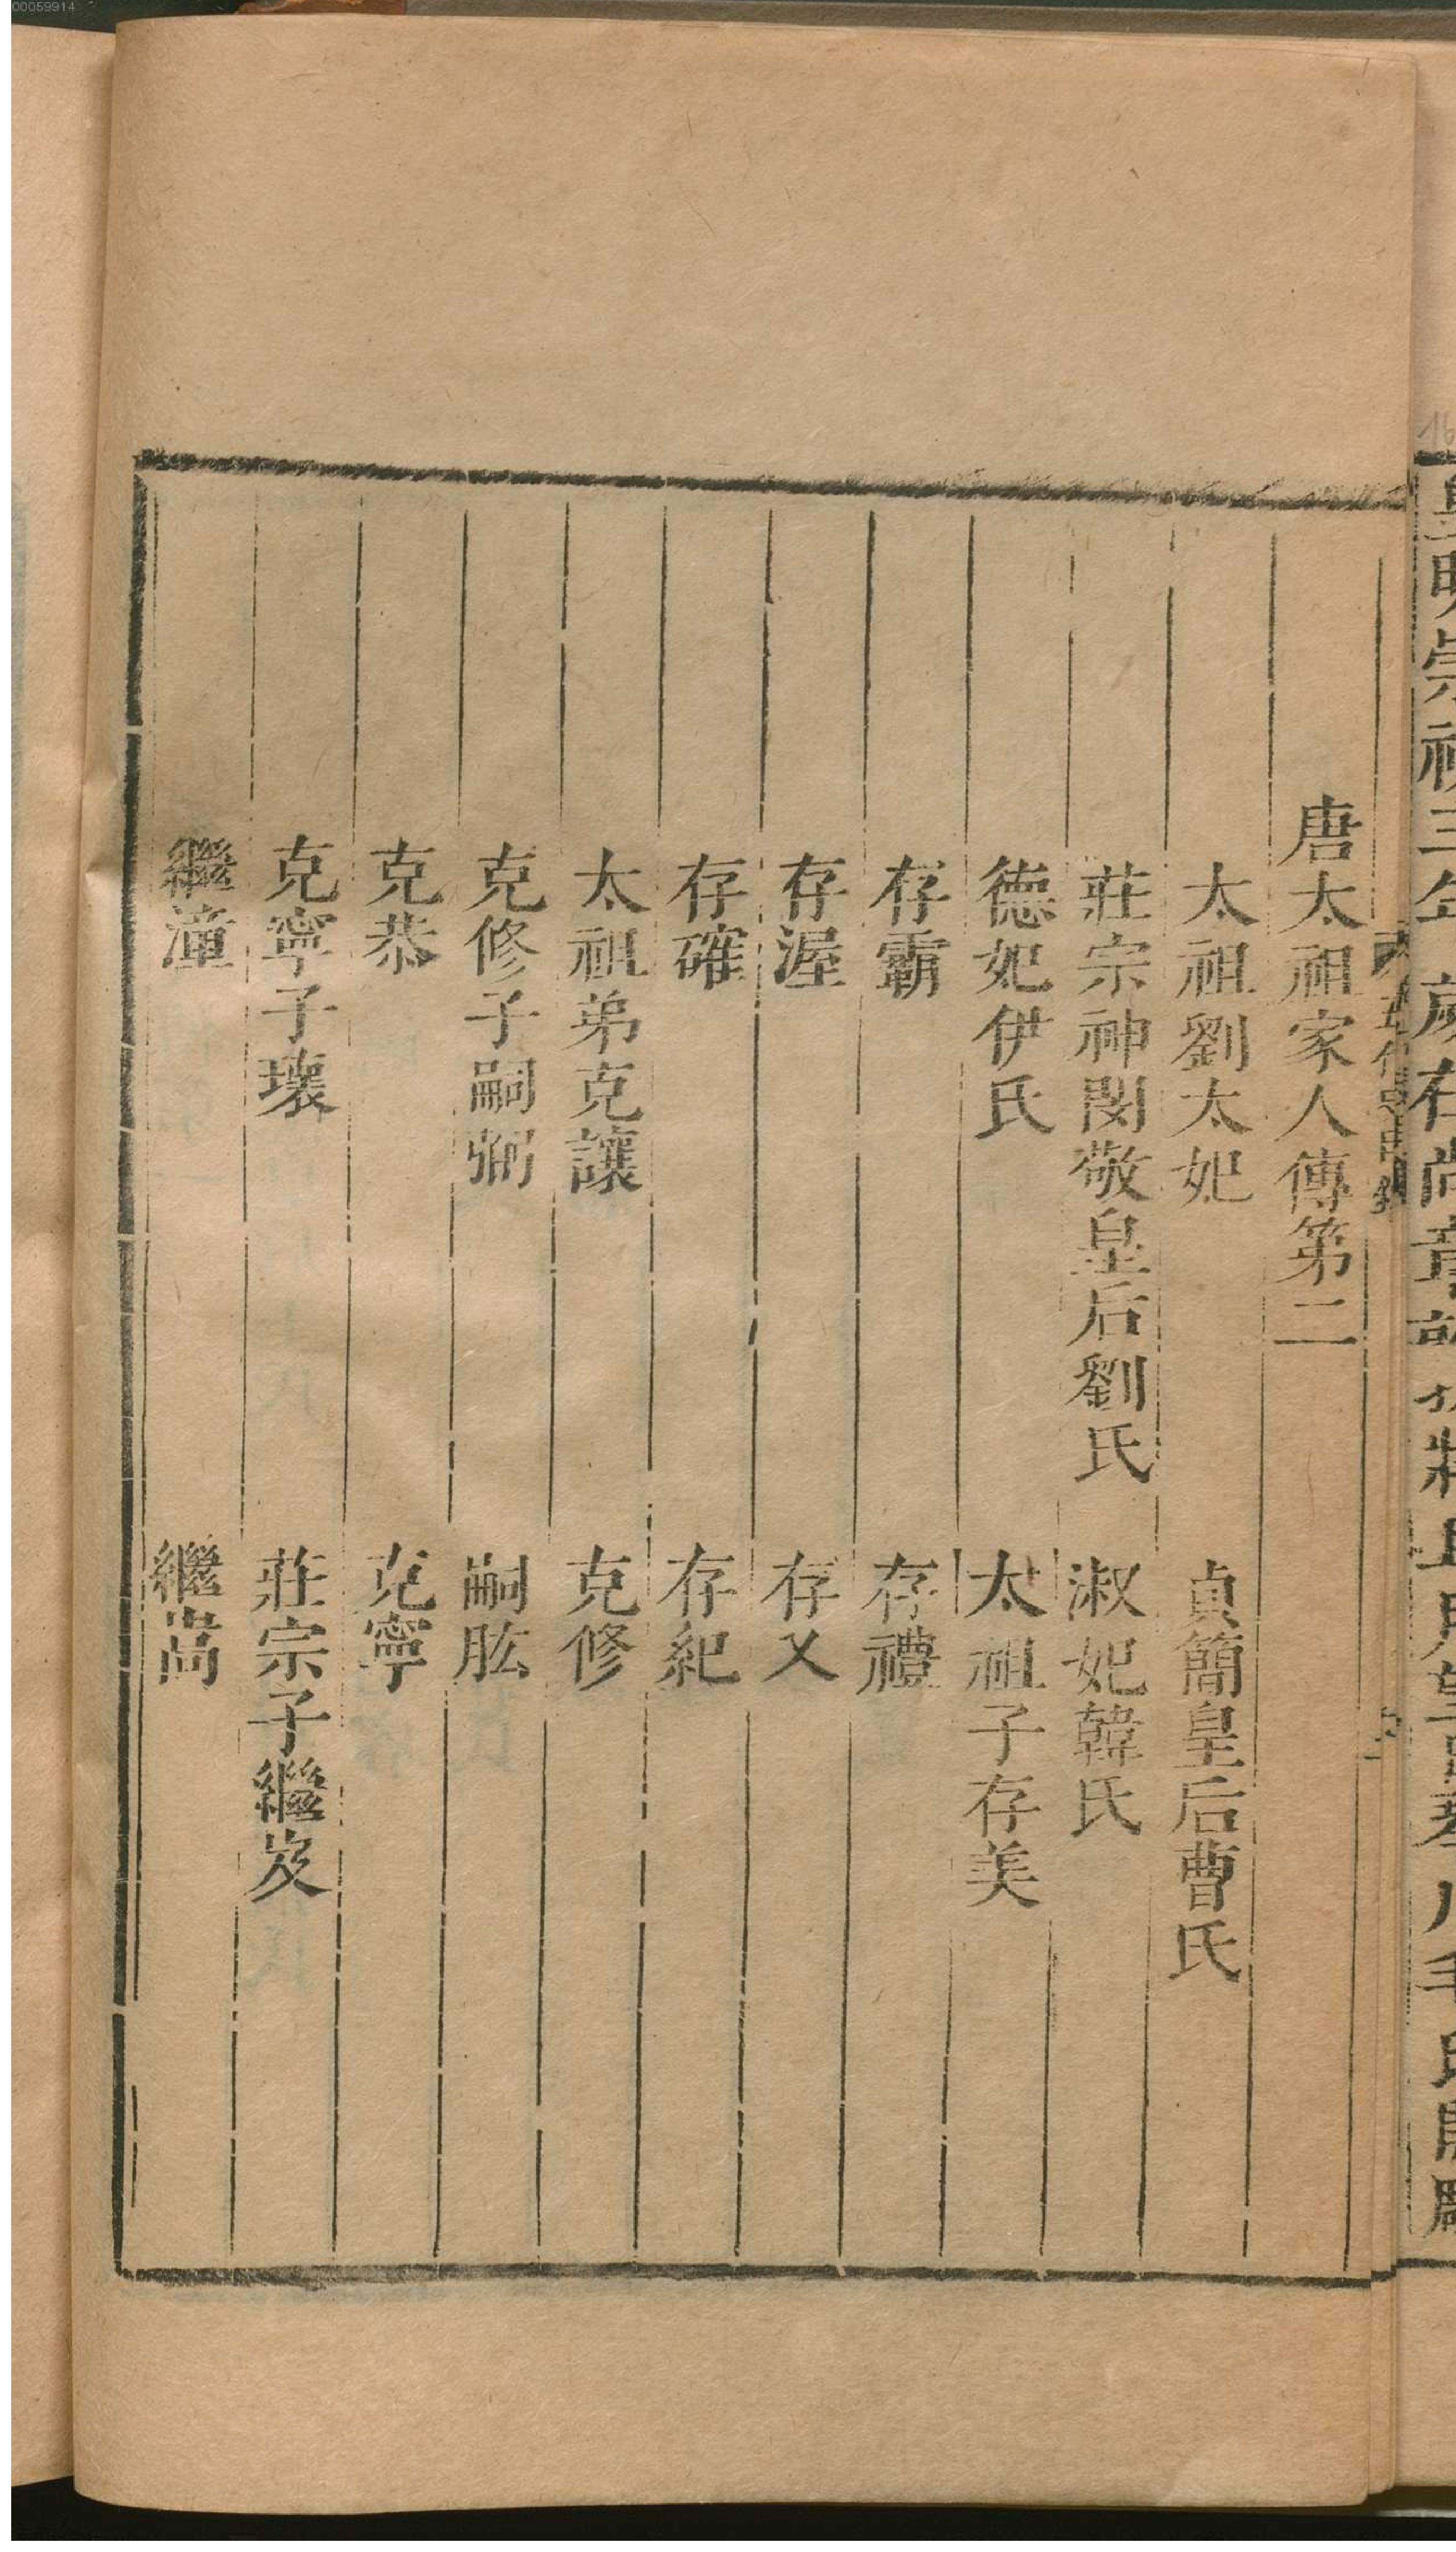 00059914
唐太祖家人傳第二
太祖劉太妃 貞簡皇后曹氏
莊宗神閔敬皇后劉氏 淑妃韓氏
德妃伊氏 太祖子存美
存霸 存禮
存渥 存乂
存確 存紀
太祖弟克讓 克修
克修子嗣弼 嗣肱
克恭 克寧
克寧子瓌 莊宗子繼岌
繼潼 繼嵩